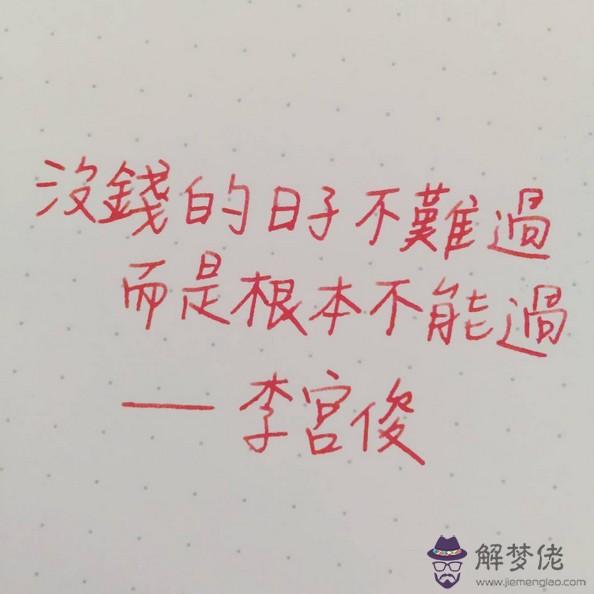 沒錢的日子不難過
而是根本不能過
——李宮俊
解梦佬
www.jiemenglao.com